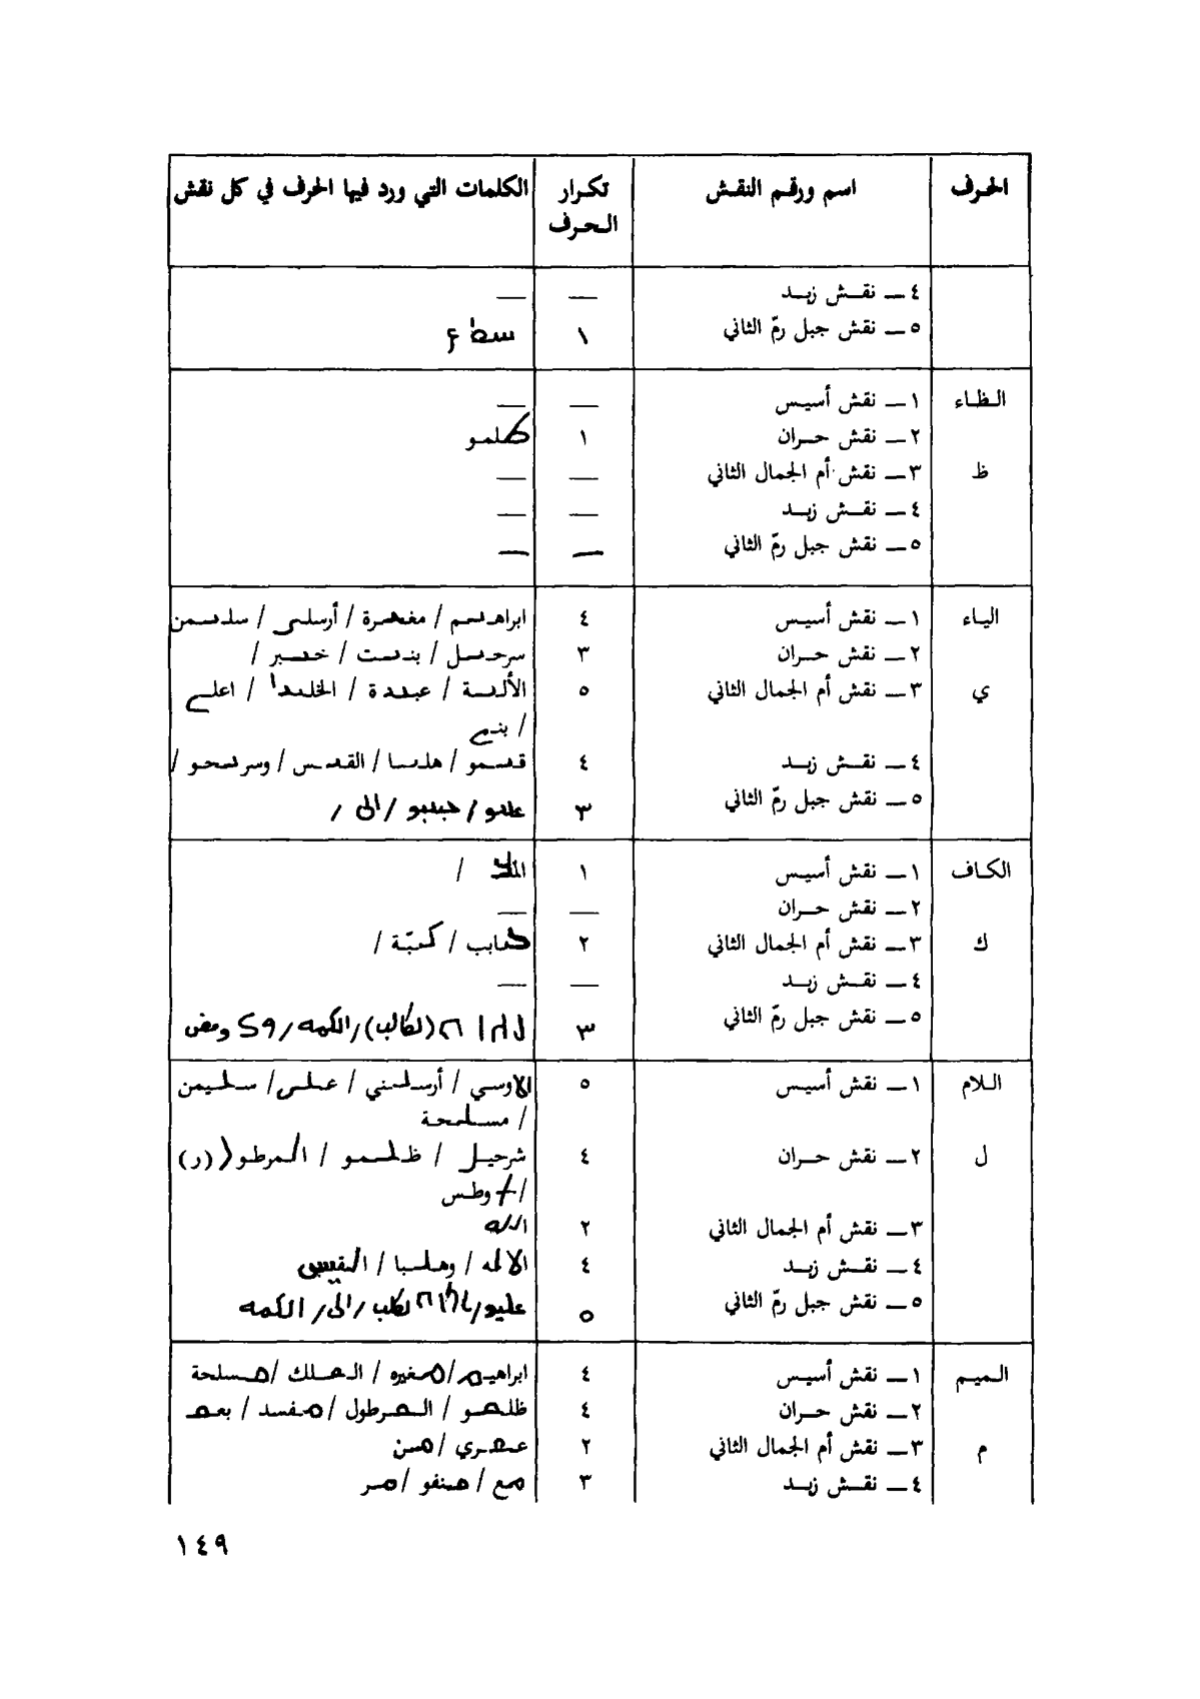 الحرف اسم ورقم النقش تكرار الحرف الكلمات التي ورد فيها الحرف في كل نقش
٤ — نقش زبد — —
٥ — نقش جبل رمّ الثاني ١ سطع
الظاء ١ — نقش أسيس — —
٢ — نقش حران ١ ظلمو
ظ ٣ — نقش أم الجمال الثاني — —
٤ — نقش زبد — —
٥ — نقش جبل رمّ الثاني — —
الياء ١ — نقش أسيس ٤ ابراهيم / مغيرة / أرسلني / سليمن
٢ — نقش حران ٣ سرحيل / بنيت / خيبر /
ي ٣ — نقش أم الجمال الثاني ٥ الألية / عبيدة / الخليدا / اعلي
/ بني
٤ — نقش زبد ٤ قيمو / هليبا / القيس / وسريحو /
٥ — نقش جبل رمّ الثاني ٣ عليو / حبيبو / الى /
الكاف ١ — نقش أسيس ١ الملك /
٢ — نقش حران — —
ك ٣ — نقش أم الجمال الثاني ٢ كاتب / كتبة /
٤ — نقش زبد — —
٥ — نقش جبل رمّ الثاني ٣ (لكاتب) / الكمه /
اللام ١ — نقش أسيس ٥ الاوسي / أرسلني / علي / سليمن
/ مسلحة
ل ٢ — نقش حران ٤ شرحيل / ظلمو / المرطول (ر)
٣ — نقش أم الجمال الثاني ٢ الله
٤ — نقش زبد ٤ الاله / وهليبا / القيس
٥ — نقش جبل رمّ الثاني ٥ عليو / لكاتب / الى / الكمه
الميم ١ — نقش أسيس ٤ ابراهيم / مغيره / الملك / مسلحة
٢ — نقش حران ٤ ظلمو / المرطول / مفسد / بعم
م ٣ — نقش أم الجمال الثاني ٢ عمري / من
٤ — نقش زبد ٣ مع / منفو / مر
١٤٩